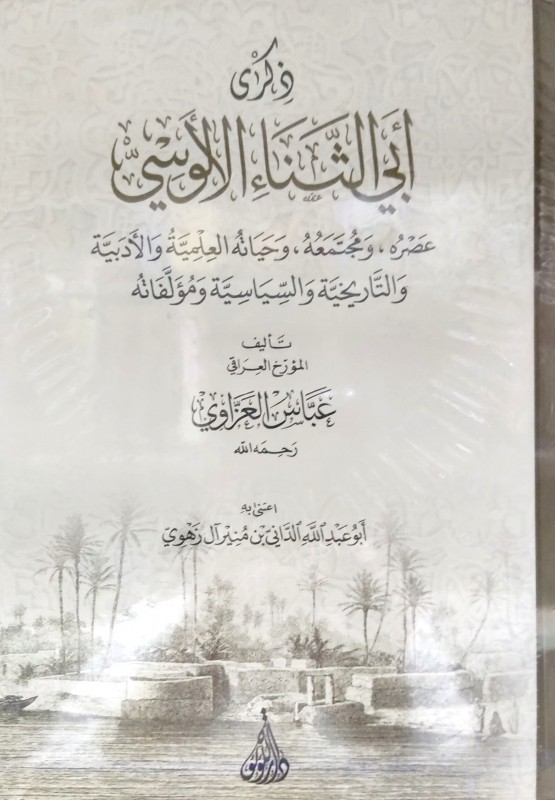 ذِكْرَى
أَبِي الثَّنَاءِ الأَلُوسِيِّ
عَصْرُه، وَمُجْتَمَعُهُ، وَحَيَاتُهُ العِلْمِيَّةُ وَالأَدَبِيَّة
وَالتَّارِيخِيَّة وَالسِّيَاسِيَّة وَمُؤَلَّفَاتُهُ
تَأليف
المؤرّخ العراقي
عَبَّاس العَزَّاوِي
رَحِمَه الله
اعتنى به
أَبُو عَبْدِ اللهِ الدَّانِي بْن مُنِير آل زَهْوِيّ
دار اللؤلؤة